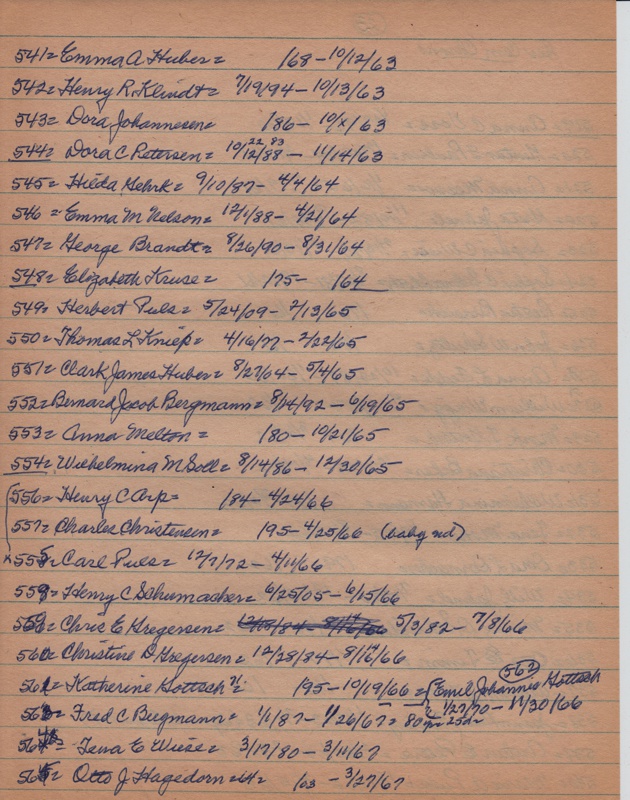 541= Emma A Huber= /68-10/12/63
542= Henry R. Klindt= 7/19/94-10/13/63
543= Dora Johannesen= /86-10/x/63
22 83
544= Dora C Petersen= 10/12/88-11/14/63
545= Hilda Gehrk= 9/10/87-4/4/64
546= Emma M Nelson= 12/1/88-4/21/64
547= George Brandt= 8/26/90-8/31/64
548= Elizabeth Kruse= /75- /64
549= Herbert Puls= 5/24/09-2/13/65
550= Thomas L Kniep= 4/16/77-2/22/65
551= Clark James Huber= 8/27/64-5/4/65
552= Bernard Jacob Bergmann= 8/14/92-6/19/65
553= Anna Melton= /80-10/21/65
554= Wilhelmina M Soll= 8/14/86-12/30/65
556= Henry C Arp= /84-4/24/66
557= Charles Christensen= 195-4/25/66 (baby nd)
x 555= Carl Puls= 12/7/72-4/11/66
559= Henry C Schumacher= 6/25/05-6/15/66
Chris E Gregersen= 5/3/82-7/8/66
560= Christine D Gregersen= 12/28/84-8/16/66
562
561= Katherine Gottsch 195-10/19/66= Emil Johannis Gottsch
1/27/70-11/30/66
563= Fred C Bergmann= 1/1/87-1/26/67= 80 yr 25 da
564= Tena E Wiese= 3/17/80-3/11/67
565= Otto J Hagedorn= /03-3/27/67